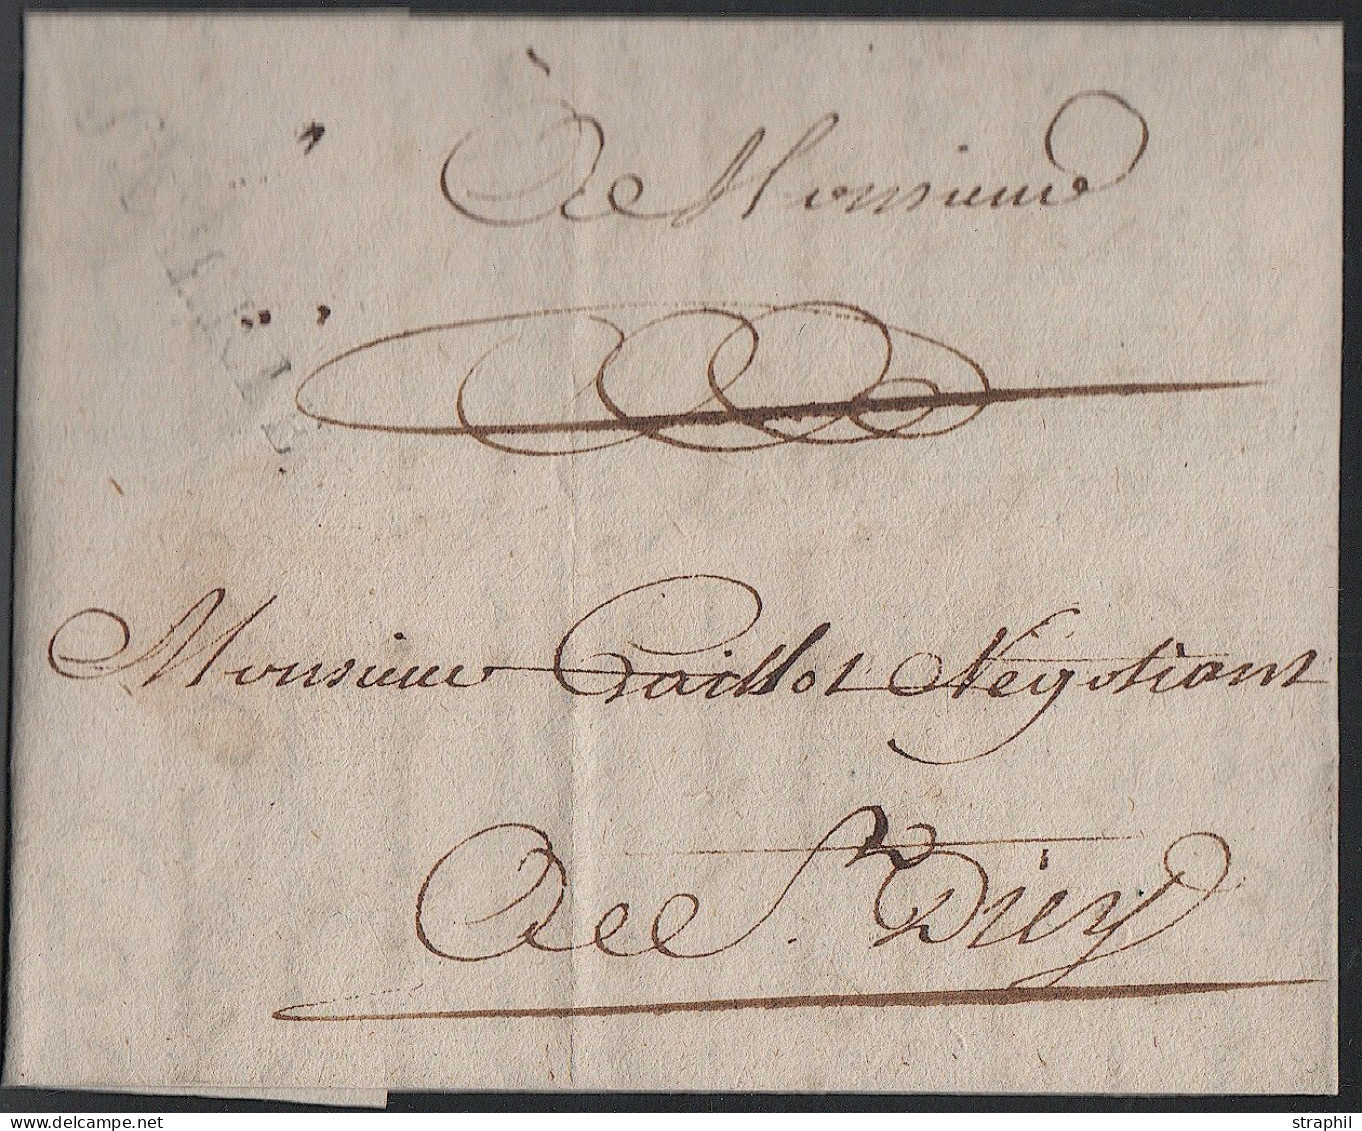 A Monsieur
Monsieur Gaillot Négotiant
A St. Diey
www.delcampe.net
straphil